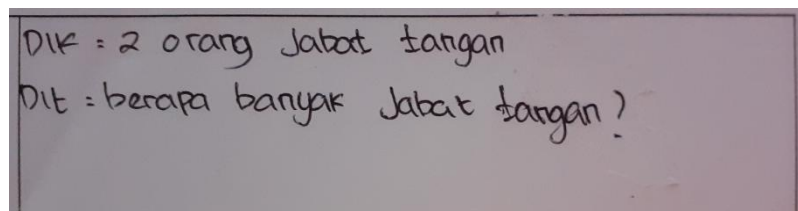 DIK = 2 orang Jabat tangan
DIt = berapa banyak Jabat tangan?